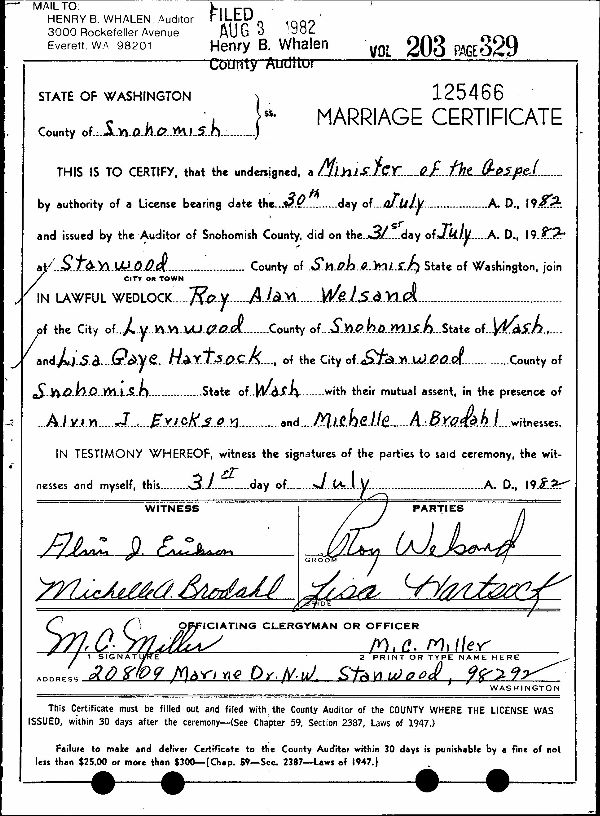 MAIL TO:
HENRY B. WHALEN Auditor
3000 Rockefeller Avenue
Everett, WA 98201
FILED
AUG 3 1982
Henry B. Whalen
County Auditor
VOL 203 PAGE 329
125466
MARRIAGE CERTIFICATE
STATE OF WASHINGTON
ss.
County of Snohomish
THIS IS TO CERTIFY, that the undersigned, a Minister of the Gospel
by authority of a License bearing date the 30th day of July A. D., 1982
and issued by the Auditor of Snohomish County, did on the 31st day of July A. D., 1982
at Stanwood County of Snohomish State of Washington, join
CITY OR TOWN
IN LAWFUL WEDLOCK Roy Alan Welsand
of the City of Lynnwood County of Snohomish State of Wash.
and Lisa Gaye Hartsock, of the City of Stanwood County of
Snohomish State of Wash with their mutual assent, in the presence of
Alvin J. Erickson and Michelle A. Brodahl witnesses.
IN TESTIMONY WHEREOF, witness the signatures of the parties to said ceremony, the wit-
nesses and myself, this 31st day of July A. D., 1982
WITNESS PARTIES
Alvin J. Erickson Roy Welsand
GROOM
Michelle A. Brodahl Lisa Hartsock
BRIDE
OFFICIATING CLERGYMAN OR OFFICER
M.C. Miller M.C. Miller
1 SIGNATURE 2 PRINT OR TYPE NAME HERE
ADDRESS 20809 Marine Dr. N.W. Stanwood, 98292
WASHINGTON
This Certificate must be filled out and filed with the County Auditor of the COUNTY WHERE THE LICENSE WAS
ISSUED, within 30 days after the ceremony—(See Chapter 59, Section 2387, Laws of 1947.)
Failure to make and deliver Certificate to the County Auditor within 30 days is punishable by a fine of not
less than $25.00 or more than $300—(Chap. 59—Sec. 2387—Laws of 1947.)